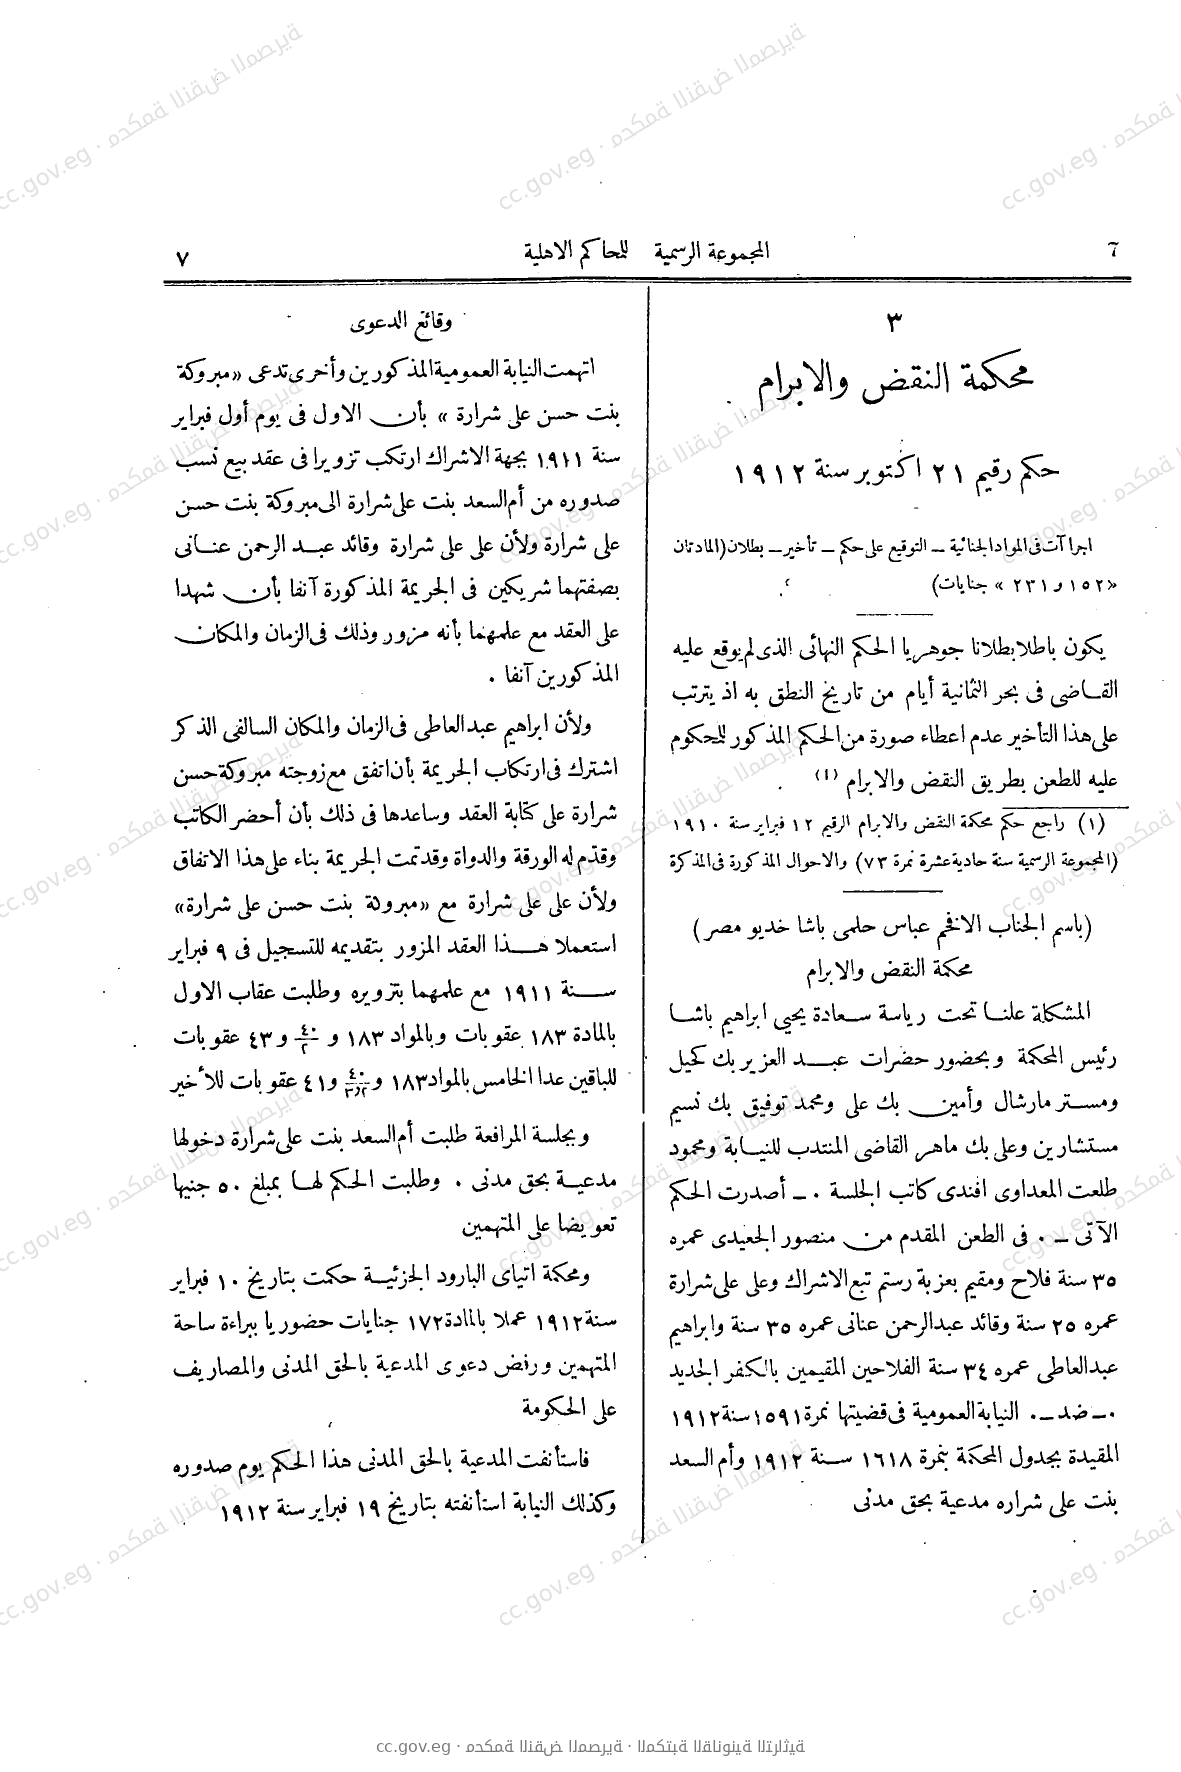 ٦
المجموعة الرسمية للمحاكم الاهلية
٧
٣
محكمة النقض والابرام
حكم رقيم ٢١ اكتوبر سنة ١٩١٢
اجراآت فى المواد الجنائية ــ التوقيع على حكم ــ تأخير ــ بطلان (المادتان
«١٥٢ و ٢٣١» جنايات)
يكون باطلا بطلانا جوهريا الحكم النهائى الذى لم يوقع عليه
القاضى فى بحر الثمانية أيام من تاريخ النطق به اذ يترتب
على هذا التأخير عدم اعطاء صورة من الحكم المذكور للمحكوم
عليه للطعن بطريق النقض والابرام (١)
(١) راجع حكم محكمة النقض والابرام الرقيم ١٢ فبراير سنة ١٩١٠
(المجموعة الرسمية سنة حادية عشرة نمرة ٧٣) والاحوال المذكورة فى المذكرة
(باسم الجناب الافخم عباس حلمى باشا خديو مصر)
محكمة النقض والابرام
المشكلة علنا تحت رياسة سعادة يحيى ابراهيم باشا
رئيس المحكمة وبحضور حضرات عبد العزيز بك كحيل
ومستر مارشال وأمين بك على ومحمد توفيق بك نسيم
مستشارين وعلى بك ماهر القاضى المنتدب للنيابة ومحمود
طلعت المعداوى افندى كاتب الجلسة ٠ــ أصدرت الحكم
الآتى ــ٠ فى الطعن المقدم من منصور الجعيدى عمره
٣٥ سنة فلاح ومقيم بعزبة رستم تبع الاشراك وعلى على شرارة
عمره ٢٥ سنة وقائد عبدالرحمن عنانى عمره ٣٥ سنة وابراهيم
عبدالعاطى عمره ٣٤ سنة الفلاحين المقيمين بالكفر الجديد
٠ــ ضد ــ٠ النيابة العمومية فى قضيتها نمرة ١٥٩١ سنة ١٩١٢
المقيدة بجدول المحكمة بنمرة ١٦١٨ سنة ١٩١٢ وأم السعد
بنت على شراره مدعية بحق مدنى
وقائع الدعوى
اتهمت النيابة العمومية المذكورين وأخرى تدعى «مبروكة
بنت حسن على شرارة» بأن الاول فى يوم أول فبراير
سنة ١٩١١ بجهة الاشراك ارتكب تزويرا فى عقد بيع نسب
صدوره من أم السعد بنت على شرارة الى مبروكة بنت حسن
على شرارة ولأن على على شرارة وقائد عبد الرحمن عنانى
بصفتهما شريكين فى الجريمة المذكورة آنفا بأن شهدا
على العقد مع علمهما بأنه مزور وذلك فى الزمان والمكان
المذكورين آنفا .
ولأن ابراهيم عبدالعاطى فى الزمان والمكان السالفى الذكر
اشترك فى ارتكاب الجريمة بأن اتفق مع زوجته مبروكة حسن
شرارة على كتابة العقد وساعدها فى ذلك بأن أحضر الكاتب
وقدّم له الورقة والدواة وقد تمت الجريمة بناء على هذا الاتفاق
ولأن على على شرارة مع «مبروكة بنت حسن على شرارة»
استعملا هذا العقد المزور بتقديمه للتسجيل فى ٩ فبراير
سنة ١٩١١ مع علمهما بتزويره وطلبت عقاب الاول
بالمادة ١٨٣ عقوبات وبالمواد ١٨٣ و ٤٠/٢ و ٤٣ عقوبات
للباقين عدا الخامس بالمواد ١٨٣ و ٤٠/٢و٣ و٤١ عقوبات للأخير
وبجلسة المرافعة طلبت أم السعد بنت على شرارة دخولها
مدعية بحق مدنى . وطلبت الحكم لها بمبلغ ٥٠ جنيها
تعويضا على المتهمين
ومحكمة اتياى البارود الجزئية حكمت بتاريخ ١٠ فبراير
سنة ١٩١٢ عملا بالمادة ١٧٢ جنايات حضوريا ببراءة ساحة
المتهمين ورفض دعوى المدعية بالحق المدنى والمصاريف
على الحكومة
فاستأنفت المدعية بالحق المدنى هذا الحكم يوم صدوره
وكذلك النيابة استأنفته بتاريخ ١٩ فبراير سنة ١٩١٢
cc.gov.eg · محكمة النقض المصرية · المكتبة القانونية التراثية